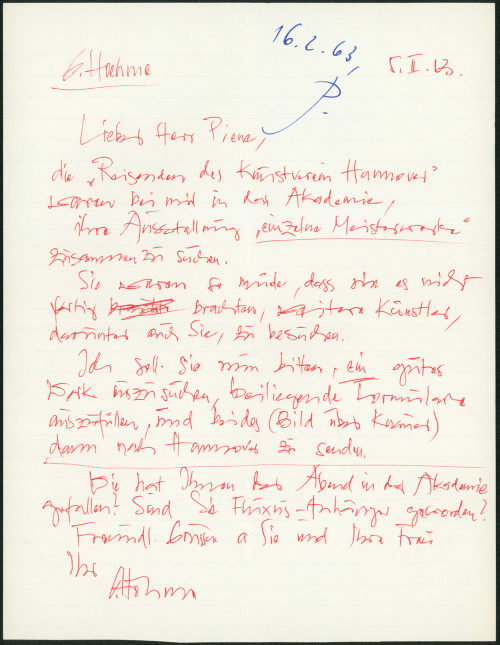 16.2.63,
P.
G. Hoehme
5.II.63.
Lieber Herr Piene,
die „Reisenden des Kunstverein Hannover"
waren bei mir in der Akademie,
ihre Ausstellung „einzelne Meisterwerke"
zusammen zu suchen.
Sie waren so müde, dass sie es nicht
fertig brachten, weitere Künstler,
darunter auch Sie, zu besuchen.
Ich soll Sie nun bitten, ein gutes
Werk auszusuchen, beiliegende Formulare
auszufüllen, und beides (Bild über Krämer)
dann nach Hannover zu senden.
Wie hat Ihnen der Abend in der Akademie
gefallen? Sind Sie Fluxus-Anhänger geworden?
Freundl. Grüsse a Sie und Ihre Frau
Ihr
G. Hoehme